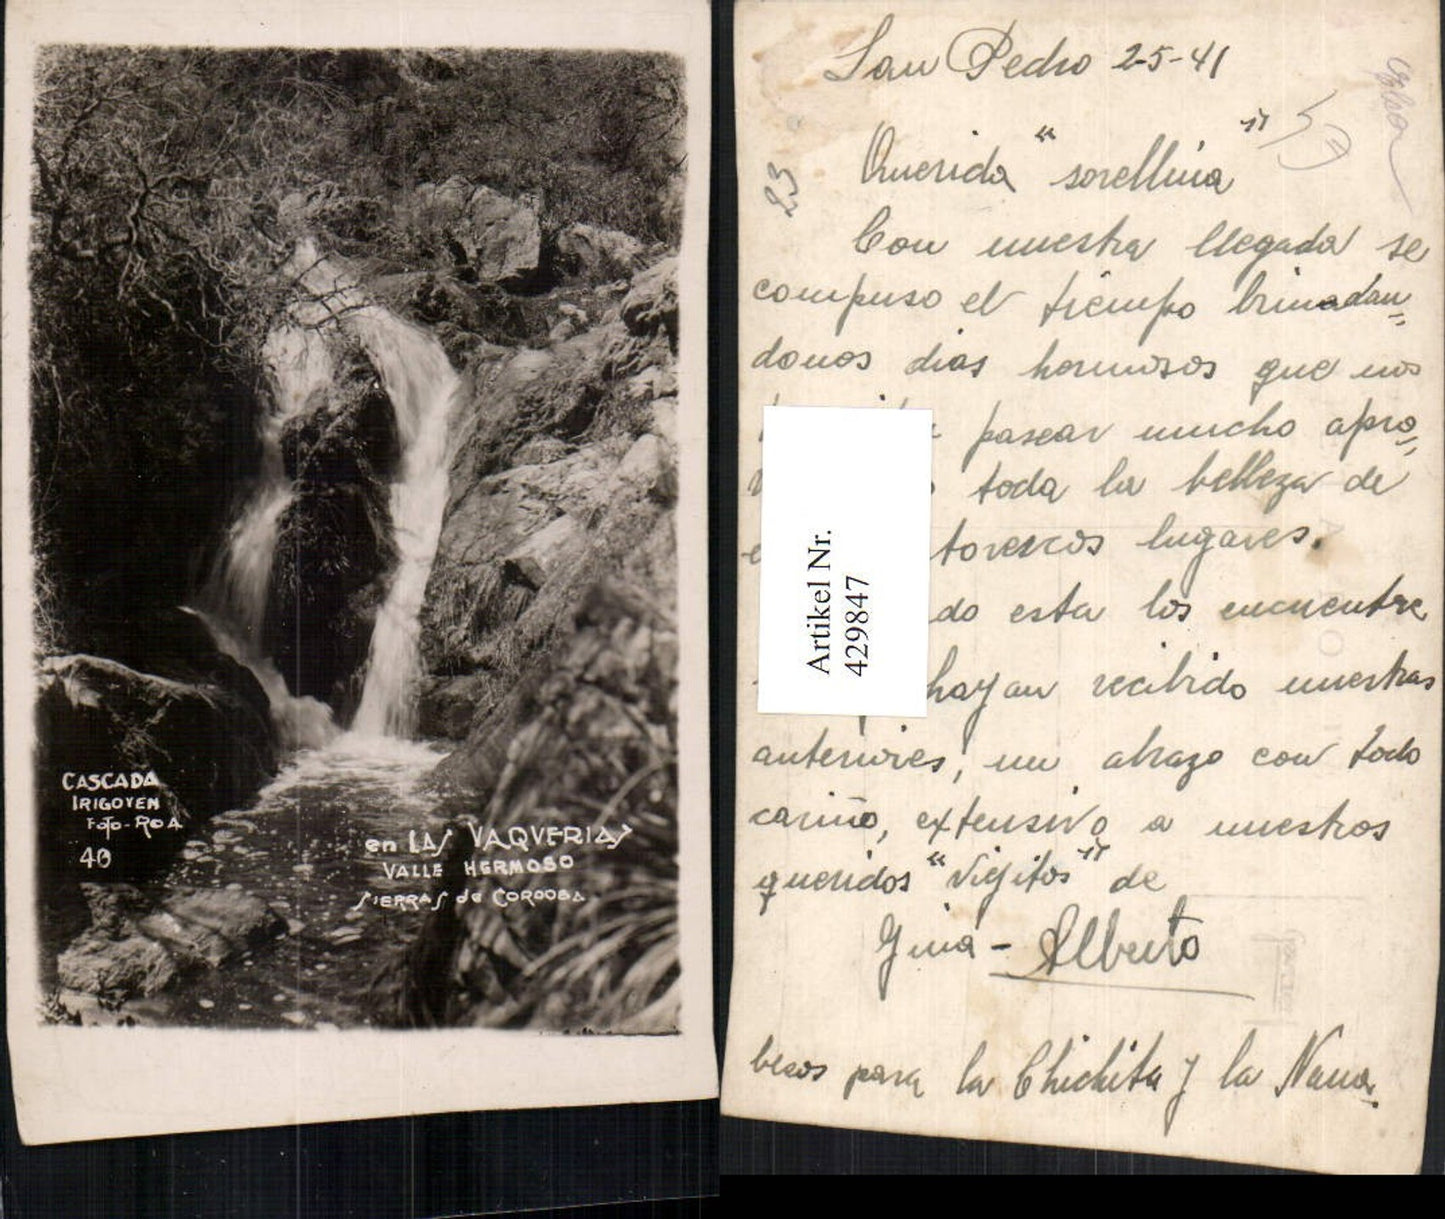 CASCADA
IRIGOYEN
FOTO-ROA
40
en LAS VAQUERIAS
VALLE HERMOSO
SIERRAS de CORDOBA
San Pedro 2-5-41
23
Querida "sorellina"
Con nuestra llegada se
compuso el tiempo brinadan
donos dias hermosos que nos
pasear mucho apro
toda la belleza de
torescos lugares.
do esta los encuentre
hayan recibido nuestras
anteriores, un abrazo con todo
cariño, extensivo a nuestros
queridos "viejitos" de
Gina - Alberto
besos para la Chichita y la Nana.
Artikel Nr.
429847